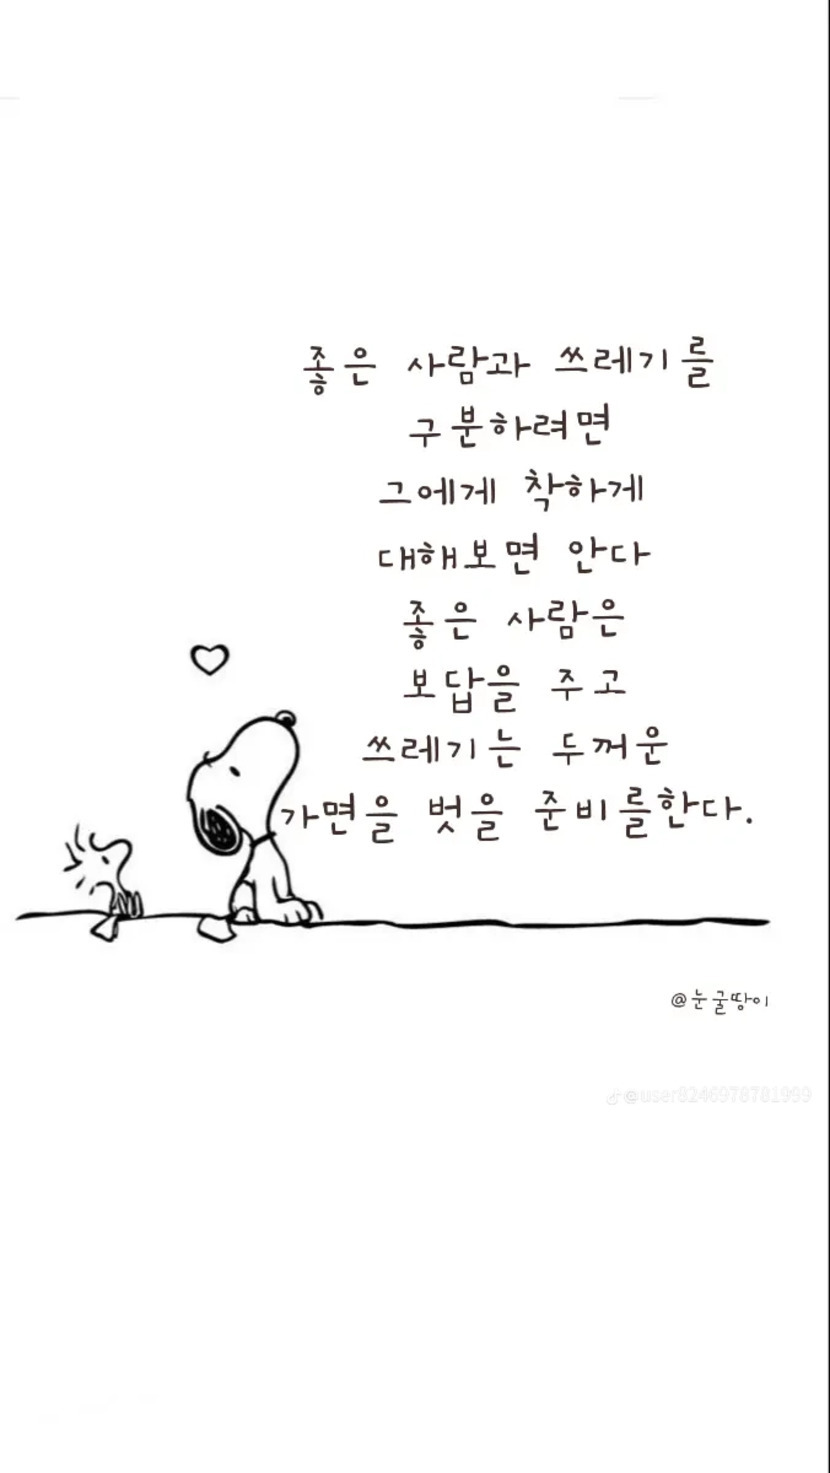 좋은 사람과 쓰레기를
구분하려면
그에게 착하게
대해보면 안다
좋은 사람은
보답을 주고
쓰레기는 두꺼운
가면을 벗을 준비를한다.
@눈굴땅이
@user8246978781999